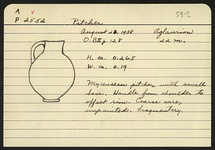 A
P 2552
Pitcher
59-2
August 28, 1938
Aglaurion
O.B.
p. 128
22 m.
H. ca. 0.265
W. ca. 0.19
Mycenaean pitcher with small
base. Handle from shoulder to
offset rim. Coarse ware,
unpainted. Fragmentary.